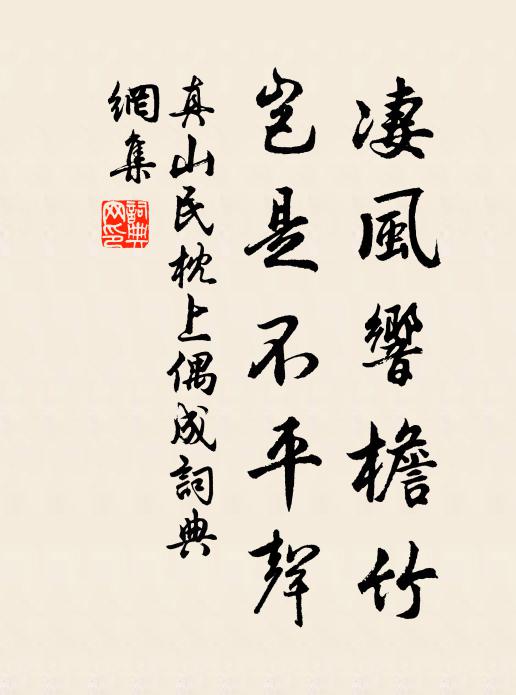 凄風響檐竹
豈是不平聲
真山民枕上偶成詞典
網集
詞典網印